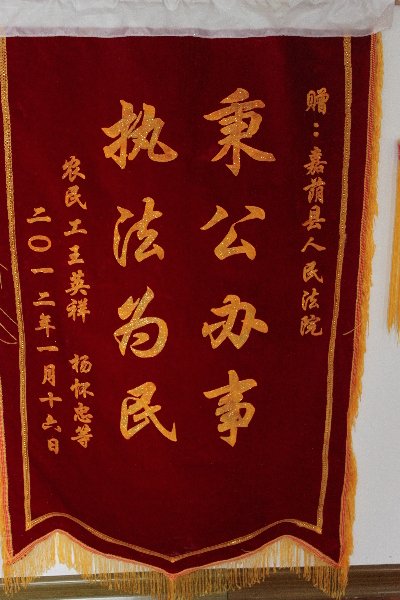 赠：嘉荫县人民法院
秉公办事
执法为民
农民工王英祥 杨怀忠等
二〇一二年一月十六日